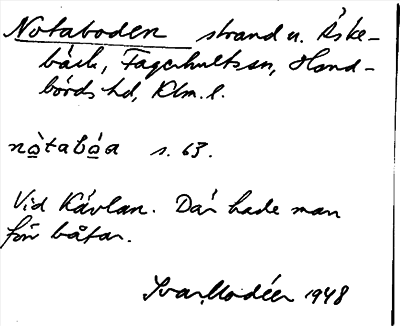 Notaboden strand u. Äske-
bäck, Fagerhults sn, Hand-
börds hd, Klm. l.
nòtabóa s. 63.
Vid Kávlan. Där hade man
förr båtar.
Ivar Modéer 1948